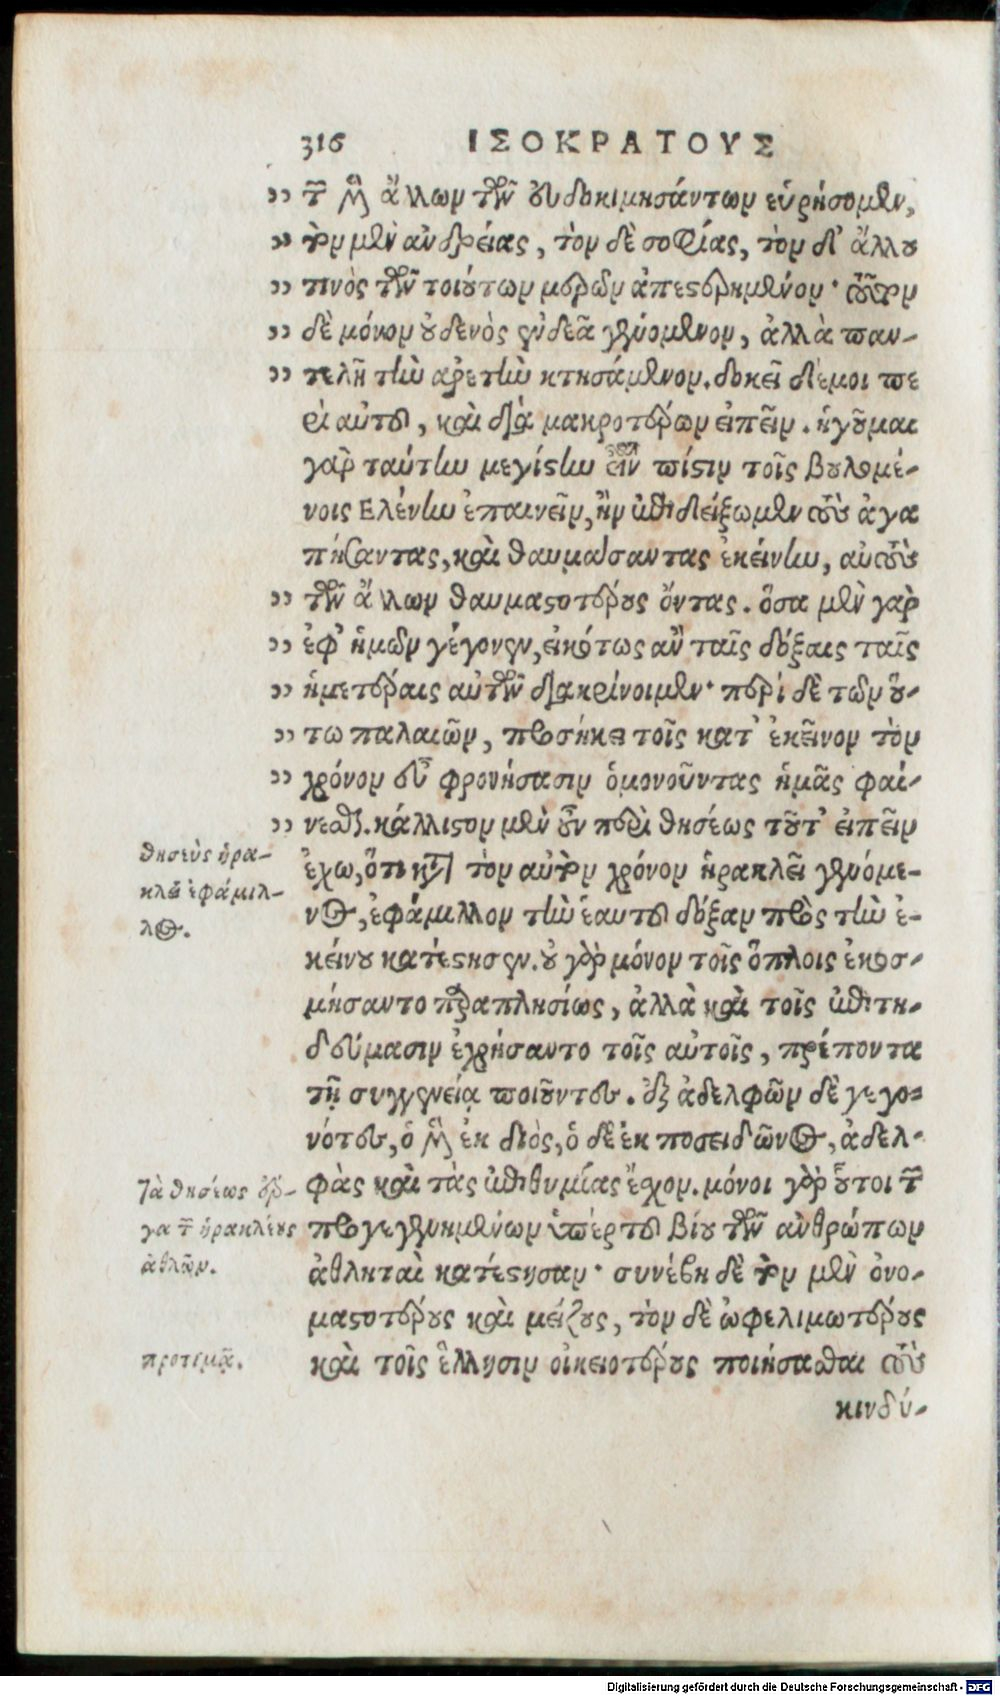 316 ΙΣΟΚΡΑΤΟΥΣ
τῶν μὲν ἄλλων τῶν εὐδοκιμησάντων εὑρήσομεν,
τὸν μὲν ἀνδρείας, τὸν δὲ σοφίας, τὸν δ' ἄλλου
τινὸς τῶν τοιούτων μερῶν ἀπεστερημένον· τοῦτον
δὲ μόνον οὐδενὸς ἐνδεᾶ γενόμενον, ἀλλὰ παν-
τελῆ τὴν ἀρετὴν κτησάμενον. δοκεῖ δέ μοι πε
ρὶ αὐτοῦ, καὶ διὰ μακροτέρων εἰπεῖν. ἡγοῦμαι
γὰρ ταύτην μεγίστην εἶναι πίστιν τοῖς βουλομέ-
νοις Ελένην ἐπαινεῖν, ἢν ἐπιδείξωμεν τοὺς ἀγα
πήσαντας, καὶ θαυμάσαντας ἐκείνην, αὐτοὺς
τῶν ἄλλων θαυμαστοτέρους ὄντας. ὅσα μὲν γὰρ
ἐφ' ἡμῶν γέγονεν, εἰκότως ἂν ταῖς δόξαις ταῖς
ἡμετέραις αὐτῶν διακρίνοιμεν· περὶ δὲ τῶν οὕ-
τω παλαιῶν, προσήκει τοῖς κατ' ἐκεῖνον τὸν
χρόνον εὖ φρονήσασιν ὁμονοῦντας ἡμᾶς φαί-
νεσθαι. κάλλιστον μὲν οὖν περὶ θησέως τοῦτ' εἰπεῖν
ἔχω, ὅτι κατὰ τὸν αὐτὸν χρόνον ἡρακλεῖ γενόμε-
νος, ἐφάμιλλον τὴν ἑαυτοῦ δόξαν πρὸς τὴν ἐ-
κείνου κατέστησεν. οὐ γὰρ μόνον τοῖς ὅπλοις ἐκοσ-
μήσαντο παραπλησίως, ἀλλὰ καὶ τοῖς ἐπιτη-
δεύμασιν ἐχρήσαντο τοῖς αὐτοῖς, πρέποντα
τῇ συγγενείᾳ ποιοῦντες. ἐξ ἀδελφῶν δὲ γεγο-
νότες, ὁ μὲν ἐκ διὸς, ὁ δὲ ἐκ ποσειδῶνος, ἀδελ-
φὰς καὶ τὰς ἐπιθυμίας ἔχον. μόνοι γὰρ οὗτοι τῶν
προγεγενημένων ὑπὲρ τοῦ βίου τῶν ἀνθρώπων
ἀθληταὶ κατέστησαν· συνέβη δὲ τὸν μὲν ὀνο-
μαστοτέρους καὶ μείζους, τὸν δὲ ὠφελιμωτέρους
καὶ τοῖς ἕλλησιν οἰκειοτέρους ποιήσασθαι τοὺς
κινδύ-
θησεὺς ἡρα-
κλεῖ ἐφάμιλ-
λος.
τὰ θησέως ἔρ-
γα τῶν ἡρακλέους
ἀθλῶν.
προτιμᾷ.
Digitalisierung gefördert durch die Deutsche Forschungsgemeinschaft - DFG